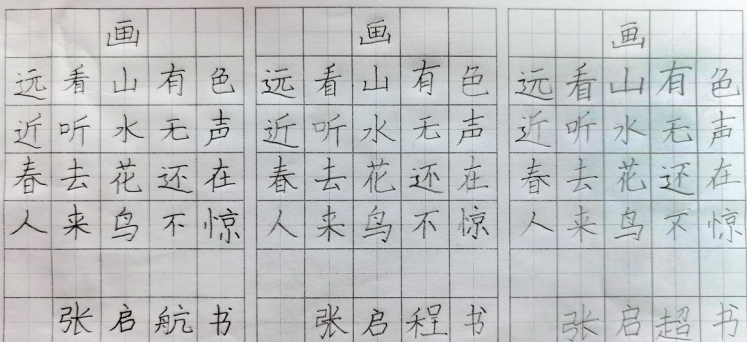 画
远看山有色
近听水无声
春去花还在
人来鸟不惊
张启航书
画
远看山有色
近听水无声
春去花还在
人来鸟不惊
张启程书
画
远看山有色
近听水无声
春去花还在
人来鸟不惊
张启超书